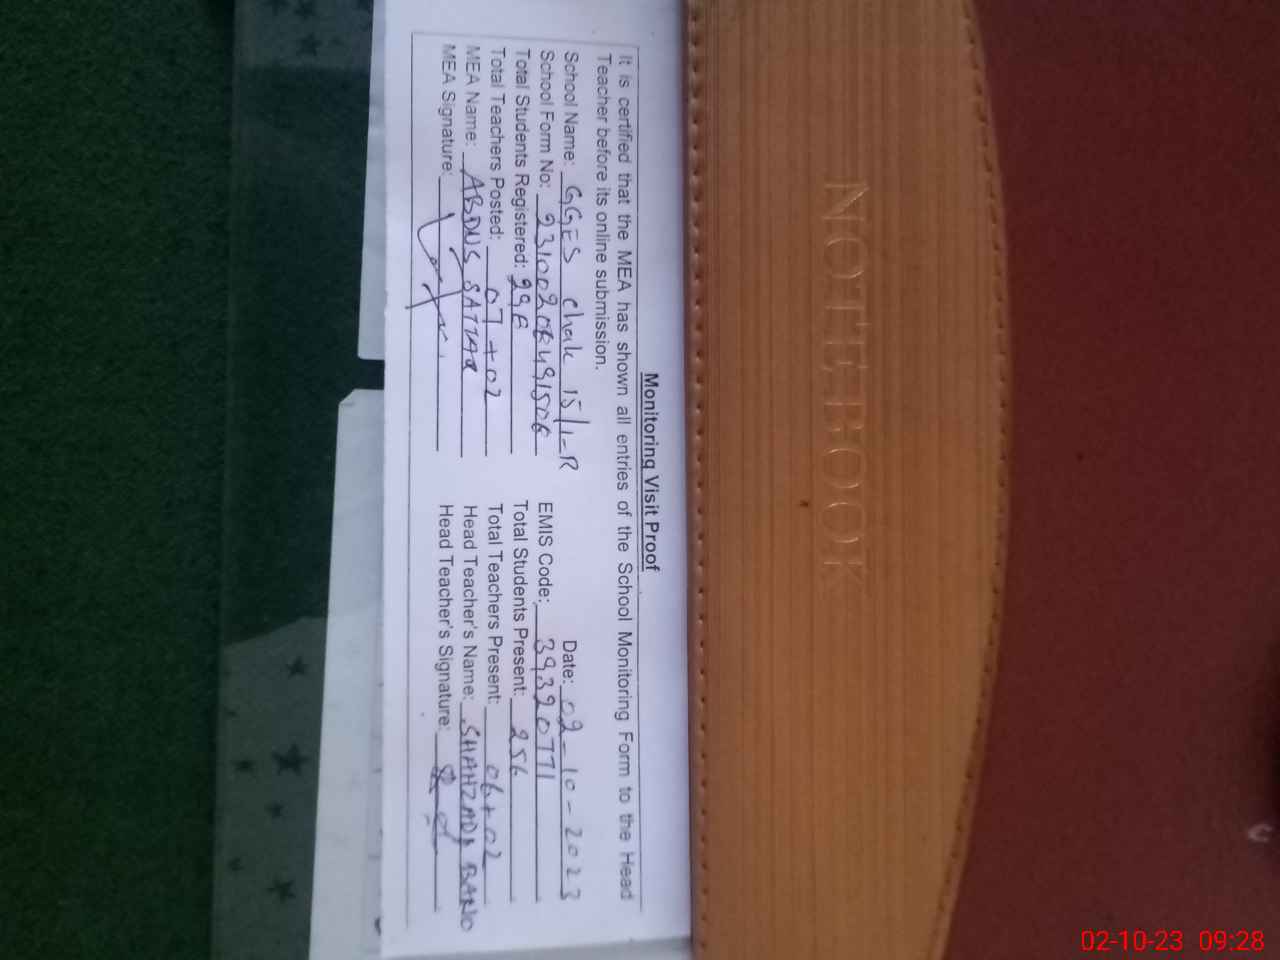 Monitoring Visit Proof
It is certified that the MEA has shown all entries of the School Monitoring Form to the Head
Teacher before its online submission.
School Name: GGES Chak 15/1-R Date: 02-10-2023
School Form No: EMIS Code: 39320771
Total Students Registered: Total Students Present: 256
Total Teachers Posted: 07+02 Total Teachers Present: 06+02
MEA Name: ABDUS SATTAR Head Teacher's Name: SHAHZADA BANO
MEA Signature: Head Teacher's Signature:
NOTEBOOK
02-10-23 09:28